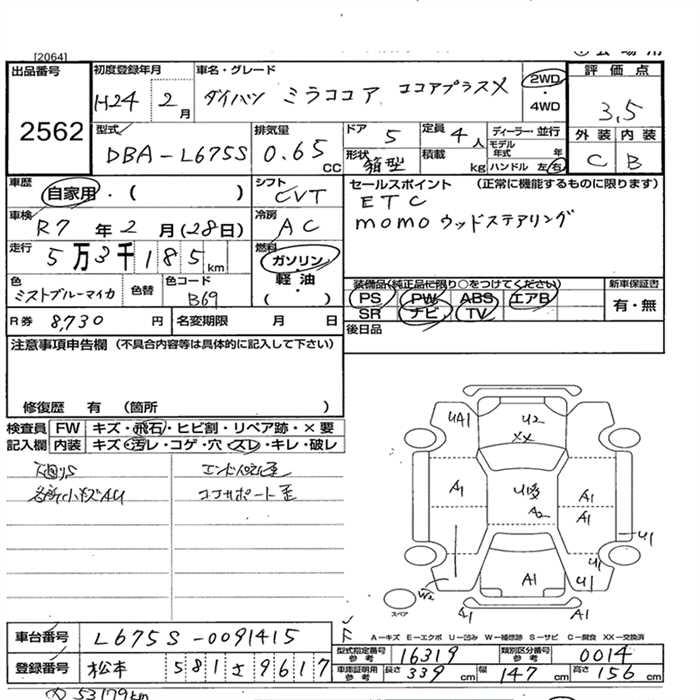 [2064]
出品番号 初度登録年月 車名・グレード 2WD・4WD 評価点
2562 H24 2月 ダイハツ ミラココア ココアプラスX 3,5
型式 排気量 ドア 5 定員 4人 ディーラー・並行 外装 内装
DBA-L675S 0.65 CC 形状 箱型 積載 kg モデル年式 年 ハンドル 左・右 C B
車歴 自家用・( ) シフト CVT セールスポイント (正常に機能するものに限ります)
車検 R7年2月(28日) 冷房 AC ETC
momoウッドステアリング
走行 5万3千185km 燃料 ガソリン・軽油・( )
色 ミストブルーマイカ 色替 色コード B69 装備品(純正品に限り○をつけてください) 新車保証書
PS PW ABS エアB 有・無
SR ナビ TV
R券 8,730円 名変期限 月 日 後日品
注意事項申告欄(不具合内容等は具体的に記入して下さい)
修復歴 有 (箇所 )
検査員 FW キズ・飛石・ヒビ割・リペア跡・×要
記入欄 内装 キズ・汚レ・コゲ・穴・スレ・キレ・破レ
各所小キズAU コアサポート歪
UA1 U2
XX
A1 A2 A1
A1
U1
U1
W2 A1 U1
スペア A1 A1
A―キズ E―エクボ U―凹み W―補修跡 S―サビ C―腐食 XX―交換済
車台番号 L675S-0091415
型式指定番号 参考 16319 類別区分番号 参考 0014
登録番号 松本 581さ9617 車庫証明用 参考 長さ 339cm 幅 147cm 高さ 156cm
53179km